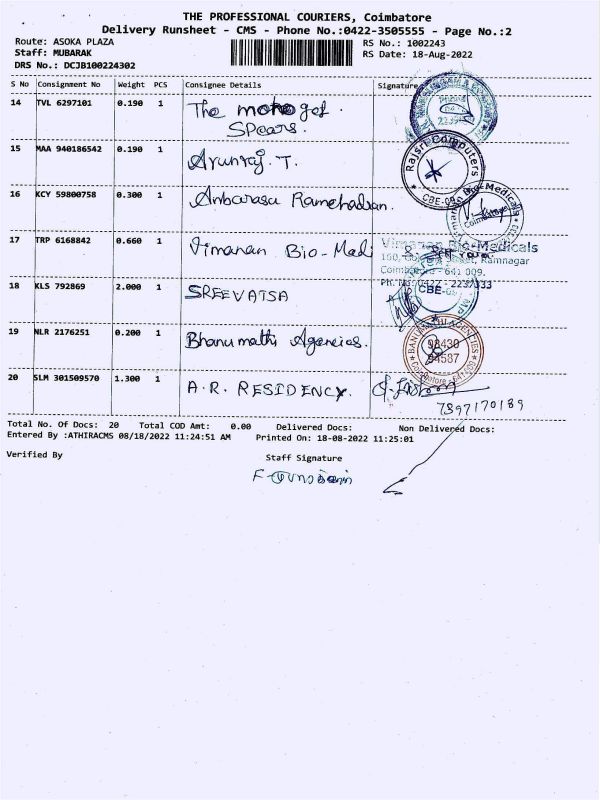 THE PROFESSIONAL COURIERS, Coimbatore
Delivery Runsheet - CMS - Phone No.:0422-3505555 - Page No.:2
Route: ASOKA PLAZA RS No.: 1002243
Staff: MUBARAK RS Date: 18-Aug-2022
DRS No.: DCJB100224302
S No Consignment No Weight PCS Consignee Details Signature
14 TVL 6297101 0.190 1 The moto gel .
Spears.
15 MAA 940186542 0.190 1 Arunraj. T.
Rajsri Computers
CBE-09
16 KCY 59800758 0.300 1 Anbarasu Ramchadran.
Coimbatore
17 TRP 6168842 0.660 1 Vimanan Bio-Medi
Vimanan Bio-Medicals
Ramnagar
Coimbatore - 641 009.
18 KLS 792869 2.000 1 SREEVATSA
CBE-09
19 NLR 2176251 0.200 1 Bhanumathi Agencies.
BANUMATHI AGENCIES
98430
94587
20 SLM 301509570 1.300 1 A.R. RESIDENCY.
7897170189
Total No. Of Docs: 20 Total COD Amt: 0.00 Delivered Docs: Non Delivered Docs:
Entered By :ATHIRACMS 08/18/2022 11:24:51 AM Printed On: 18-08-2022 11:25:01
Verified By Staff Signature